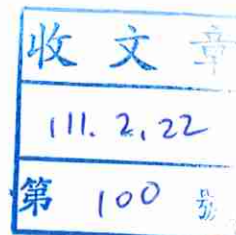 收文章
111.2.22
第 100 號